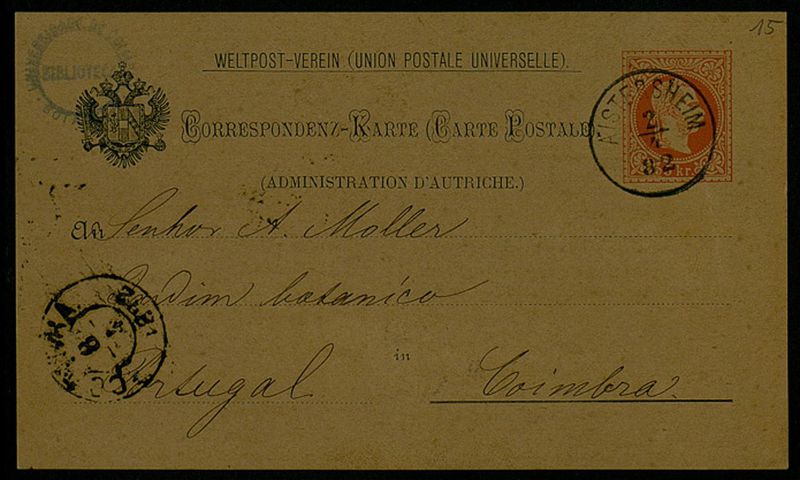 15
BIBLIOTEC
WELTPOST-VEREIN (UNION POSTALE UNIVERSELLE).
CORRESPONDENZ-KARTE (CARTE POSTALE
(ADMINISTRATION D'AUTRICHE.)
AISTERSHEIM
82
kr.
An Senhor A. Moller
Jardim botanico
in
Portugal Coimbra.